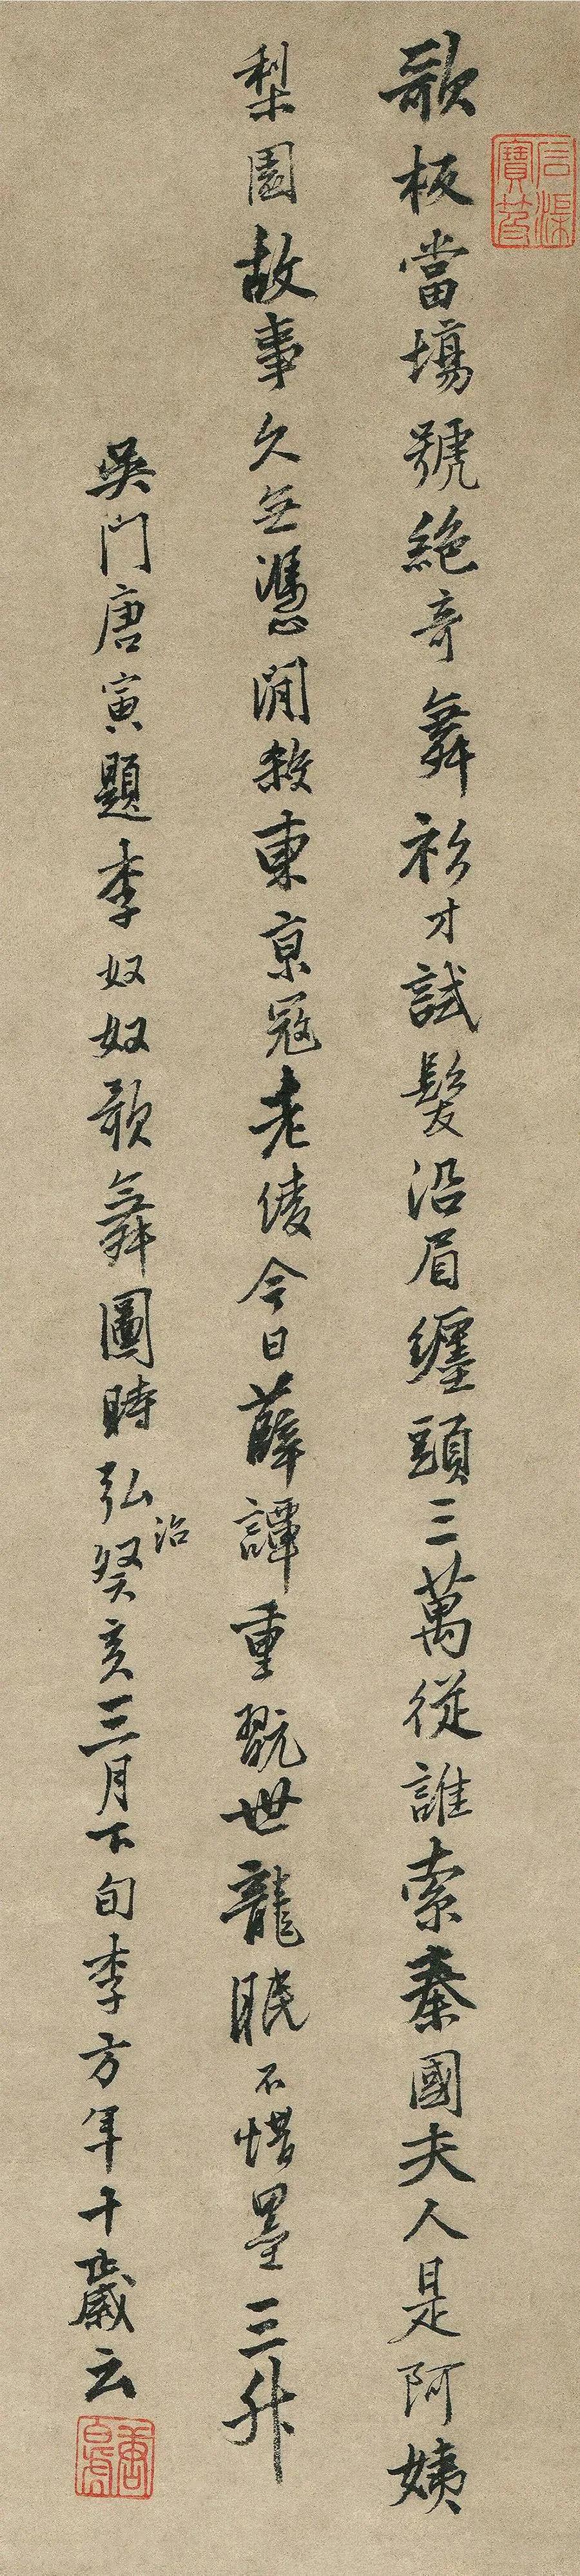 歌板當場號絶奇舞衫才試髮沿眉纏頭三萬從誰索秦國夫人是阿姨
梨園故事久無憑閒殺東京寇老倰今日薛譚重翫世龍眠不惜墨三升
吳門唐寅題李奴奴歌舞圖時弘治癸亥三月下旬李方年十歲云